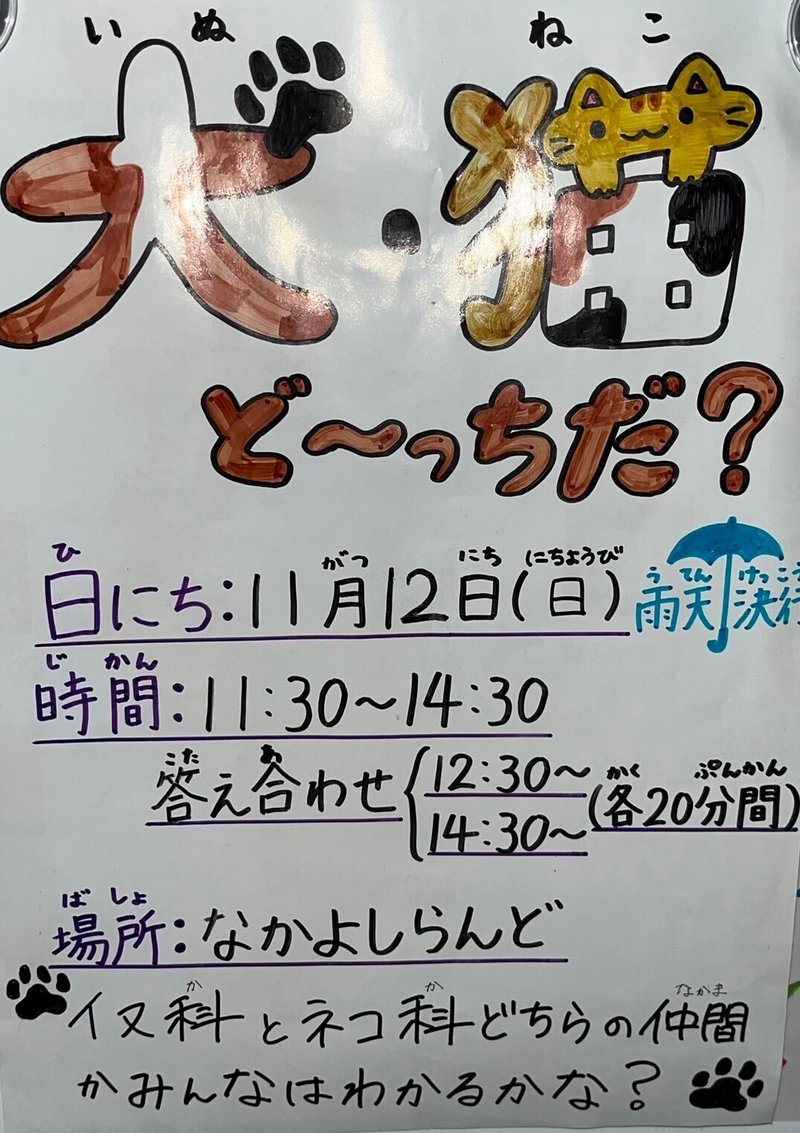 いぬ ねこ
犬・猫
ど〜っちだ?
ひ がつ にち にちようび
日にち:11月12日(日)
うてん けっこう
雨天決行
じ かん
時間:11:30〜14:30
こた あ
答え合わせ
12:30〜
14:30〜
かく ぷんかん
(各20分間)
ば しょ
場所:なかよしらんど
か か なかま
イヌ科とネコ科どちらの仲間
かみんなはわかるかな?